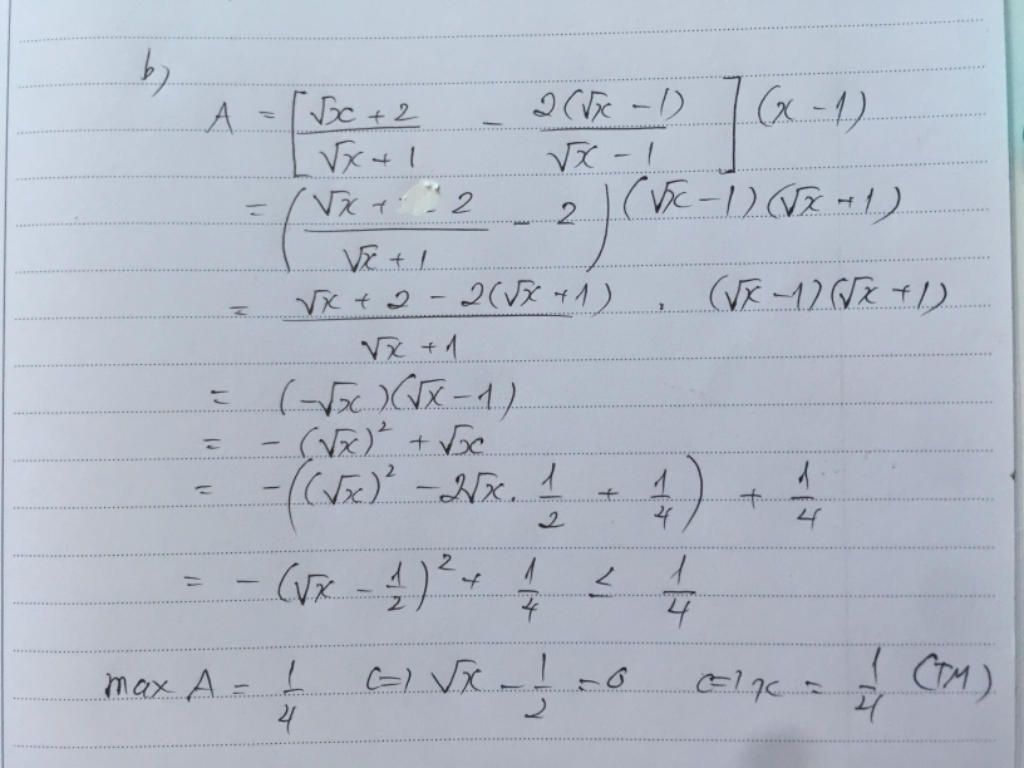 b)
A = [ (√x + 2)/(√x + 1) - 2(√x - 1)/(√x - 1) ] (x - 1)
= ( (√x + 2)/(√x + 1) - 2 ) (√x - 1)(√x + 1)
= (√x + 2 - 2(√x + 1))/(√x + 1) . (√x - 1)(√x + 1)
= (-√x)(√x - 1)
= - (√x)² + √x
= - ( (√x)² - 2√x. 1/2 + 1/4 ) + 1/4
= - (√x - 1/2)² + 1/4 ≤ 1/4
max A = 1/4 <=> √x - 1/2 = 0 <=> x = 1/4 (TM)